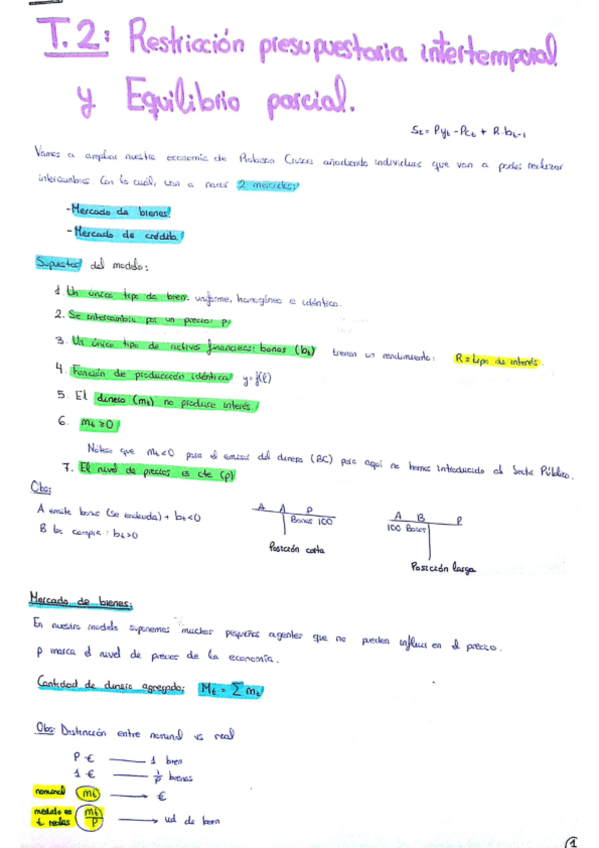 T.2: Restricción presupuestaria intertemporal
y Equilibrio parcial.
St = Pyt - Pct + R·bt-1
Vamos a ampliar nuestra economía de Robinson Crusoe añadiendo individuos que van a poder realizar
intercambios. Con lo cuál, van a nacer 2 mercados:
- Mercado de bienes.
- Mercado de crédito.
Supuestos del modelo:
1. Un único tipo de bien: uniforme, homogéneo e idéntico.
2. Se intercambia por un precio: p
3. Un único tipo de activos financieros: bonos (bt) tienen un rendimiento: R = tipo de interés.
4. Función de producción idéntica y=f(l)
5. El dinero (mt) no produce interés.
6. mt ≥ 0
Nótese que mt<0 para el emisor del dinero (BC) pero aquí no hemos introducido al Sector Público.
7. El nivel de precios es cte (p)
Obs:
A emite bonos (se endeuda) → bt<0
B los compra: bt>0
A A P
Bonos 100
Posición corta
A B P
100 Bonos
Posición larga
Mercado de bienes:
En nuestro modelo suponemos muchos pequeños agentes que no pueden influir en el precio.
p marca el nivel de precios de la economía.
Cantidad de dinero agregado: Mt = Σ mt
Obs: Distinción entre nominal vs real
P € → 1 bien
1 € → 1/p bienes
nominal mt → €
medido en t. reales mt/P → ud de bien
1